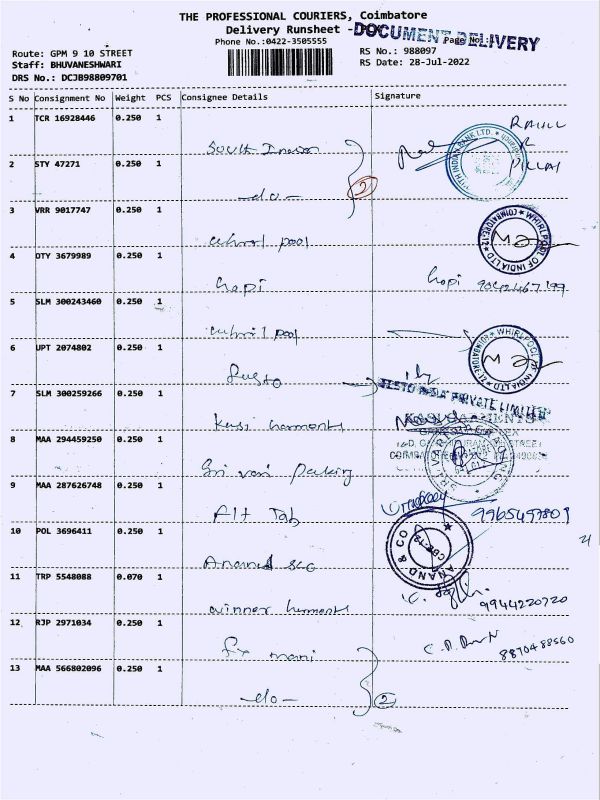 THE PROFESSIONAL COURIERS, Coimbatore
Delivery Runsheet - DOCUMENT DELIVERY
Phone No.:0422-3505555 Page No:
Route: GPM 9 10 STREET RS No.: 988097
Staff: BHUVANESHWARI RS Date: 28-Jul-2022
DRS No.: DCJB98809701
S No Consignment No Weight PCS Consignee Details Signature
1 TCR 16928446 0.250 1
South Indian RAHUL R PILLAI
2 STY 47271 0.250 1
-do- 2
3 VRR 9017747 0.250 1
whirl pool WHIRLPOOL OF INDIA LTD COIMBATORE-12
4 OTY 3679989 0.250 1
hopi hopi
5 SLM 300243460 0.250 1
whirl pool WHIRLPOOL OF INDIA LTD COIMBATORE-12
6 UPT 2074802 0.250 1
Festo FESTO INDIA PRIVATE LIMITED
7 SLM 300259266 0.250 1
8 MAA 294459250 0.250 1
Sri vari packing
9 MAA 287626748 0.250 1
Alt Tab 9965497809
10 POL 3696411 0.250 1
Anand &co ANAND & CO CBE-12
11 TRP 5548088 0.070 1
winner 9944220720
12 RJP 2971034 0.250 1
mani 8870488560
13 MAA 566802096 0.250 1
-do- 2